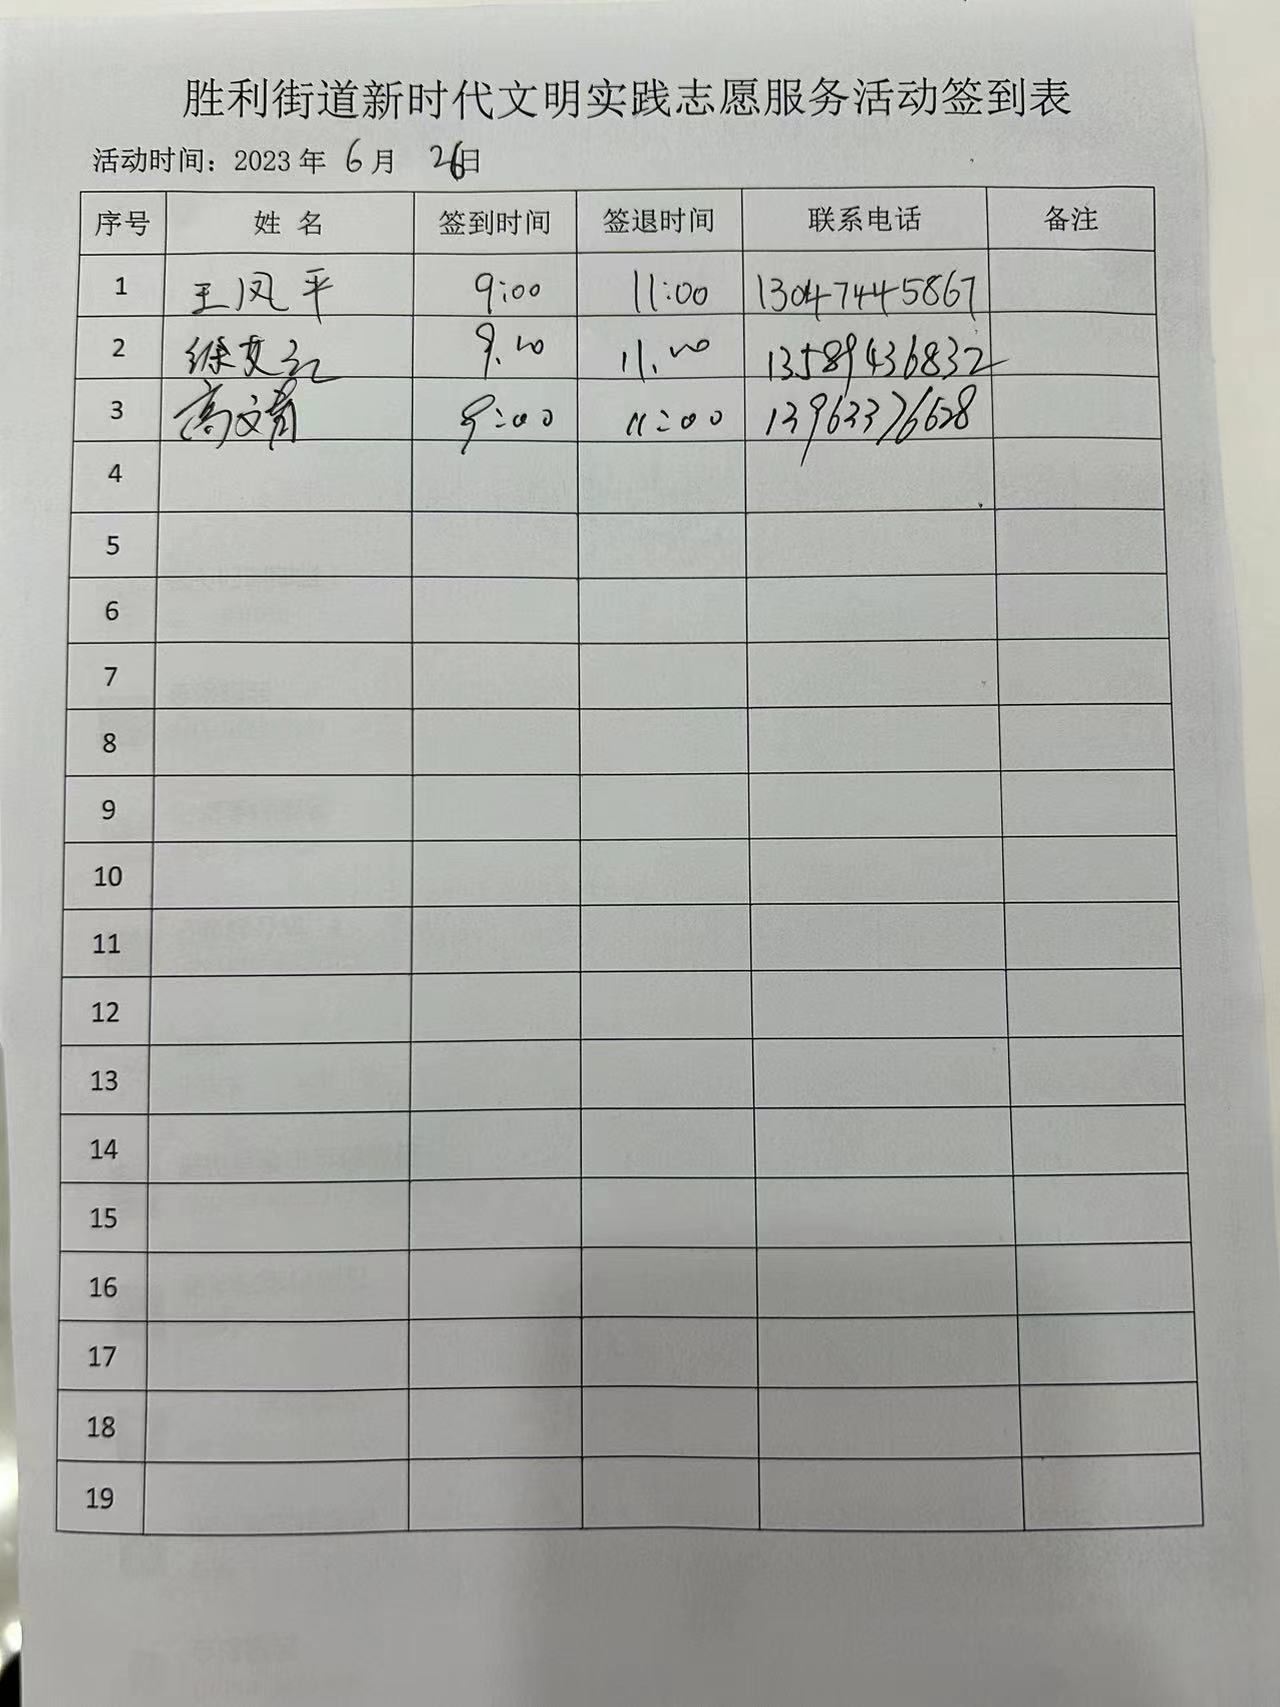 胜利街道新时代文明实践志愿服务活动签到表
活动时间：2023 年 6 月 26日
序号 姓 名 签到时间 签退时间 联系电话 备注
1 王凤平 9:00 11:00 13047445867
2 9.00 11.00 13589436832
3 高文菁 9:00 11:00 13963376628
4
5
6
7
8
9
10
11
12
13
14
15
16
17
18
19